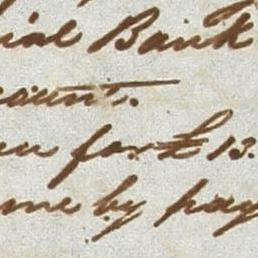 ial Bank
count.
for £13.
me by pay